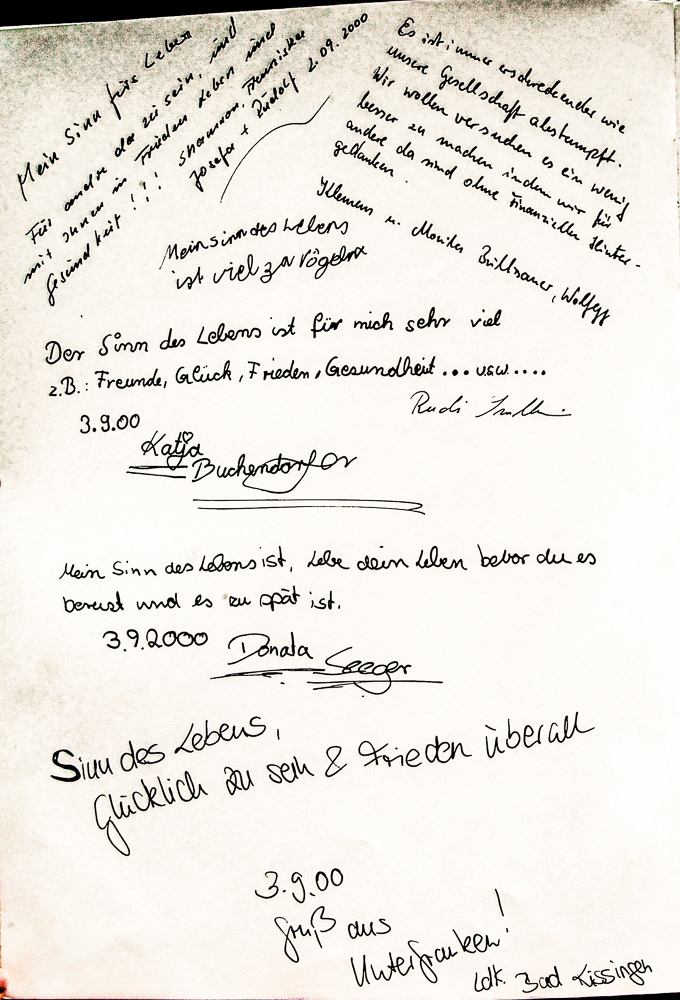 Mein Sinn fürs Leben
Für andre da zu sein, und
mit ihnen in Frieden leben und
Gesundheit!!! Shannon, Franziska
Josefa + Rudolf 2.09.2000
Es ist immer erschreckender wie
unsere Gesellschaft abstumpft.
Wir wollen versuchen es ein wenig
besser zu machen indem wir für
andere da sind ohne finanziellen Hinter-
gedanken.
Klemens u. Monika Wolfegg
Mein sinn des Lebens
ist viel zu vögeln
Der Sinn des Lebens ist für mich sehr viel
z.B.: Freunde, Glück, Frieden, Gesundheit ... usw. ....
Rudi
3.9.00
Katja
Buchendorfer
Mein Sinn des Lebens ist, Lebe dein Leben bevor du es
bereust und es zu spät ist.
3.9.2000 Donata Seeger
Sinn des Lebens,
Glücklich zu sein & Frieden überall
3.9.00
Gruß aus
Unterfranken!
Ldk. Bad Kissingen